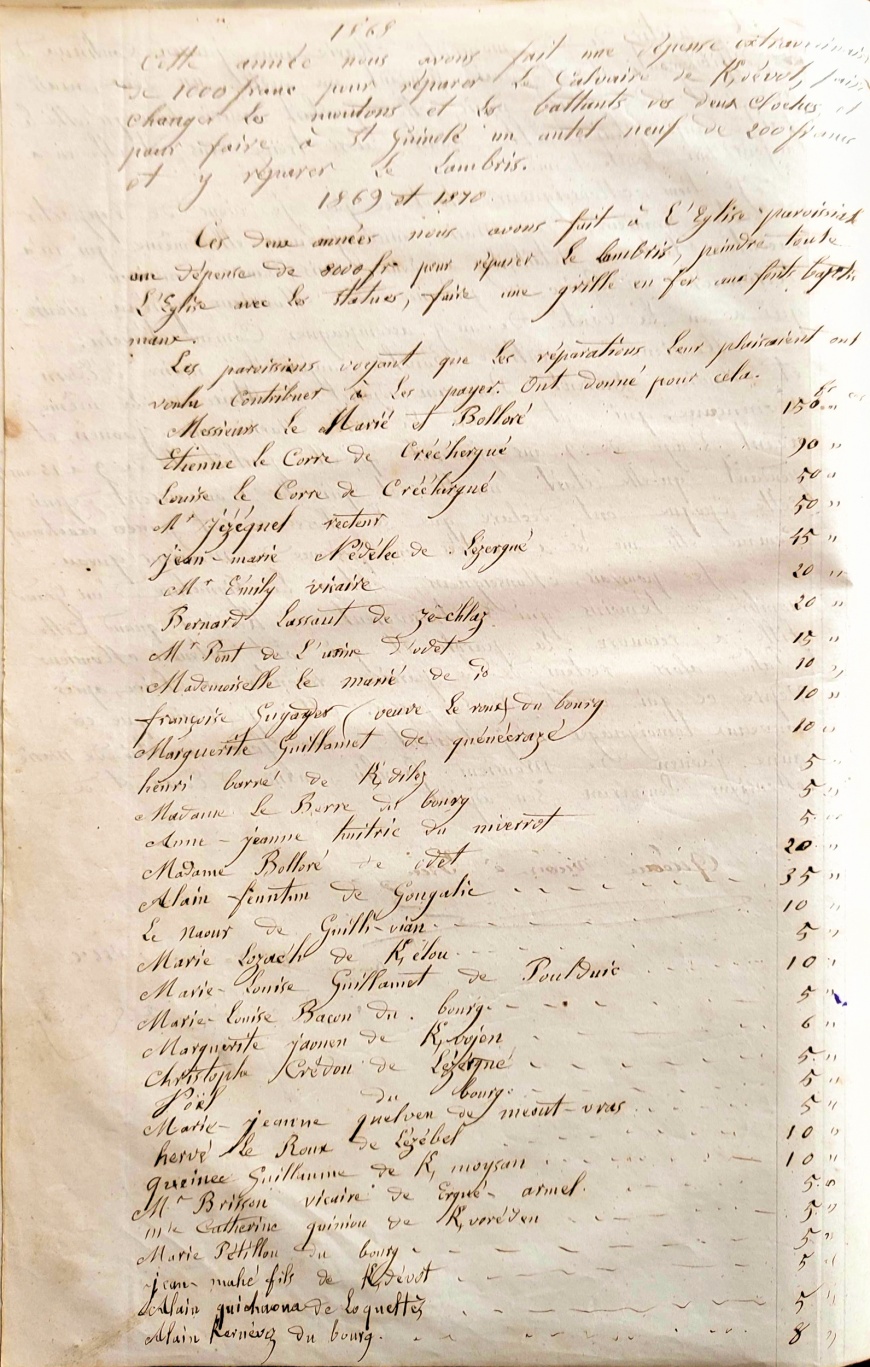 1868
Cette année nous avons fait une dépense extraordinaire
de 1000 franc pour réparer le Calvaire de K, dévot, faire
changer les moutons et les battants des deux cloches et
pour faire à St Guinolé un autel neuf de 200 francs
et y réparer le Lambris.
1869 et 1870
Ces deux années nous avons fait à l'Eglise paroissiale
une dépense de 8000 fr pour réparer le lambris, peindre toute
L'Eglise avec les statues, faire une grille en fer aux fonts baptis
maux.
Les paroissiens voyant que les réparations leur plaisaient ont
voulu contribuer à les payer. Ont donné pour cela.
Messieurs Le Marié et Bolloré 150 fr
Etienne le Corre de Crééhergué 90 "
Louise le Corre de Crééhergué 50 "
Mr Jézéquel recteur 50 "
Jean-marie Nédélec de Lézergué 45 "
Mr Emily vicaire 20 "
Bernard Lassaut de 20 "
Mr Pont de L'usine d'odet 15 "
Mademoiselle le marié de 10 "
françoise (veuve Le roux) du bourg 10 "
Marguerite Guillamet de quénécrazé 10 "
henri barré de K, dilez 5 "
Madame Le Berre du bourg 5 "
Anne-jeanne huitric du niverrot 5 "
Madame Bolloré de odet 20 "
Alain feunteun de Gongalic 35 "
Le naour de Guilli-vian 10 "
Marie Lozach de K, élou 5 "
Marie-Louise Guillamet de Poulduic 10 "
Marie-Louise Bacon du bourg 5 "
Marguerite jaouen de K, vojen 6 "
Christophe Crédou de Lézergué 5 "
Noël du bourg 5 "
Marie-jeanne quelven de meout-vras 5 "
hervé Le Roux de Lézébel 10 "
queinec Guillaume de K, moysan 10 "
Mr Brisson vicaire de Ergué-armel 5 "
Mie Catherine quiniou de K, voréden 5 "
Marie Pétillon du bourg 5 "
jean mahé fils de K, dévot 5 "
Alain guichaoua de Loquettes 5 "
Alain Kernévez du bourg 8 "